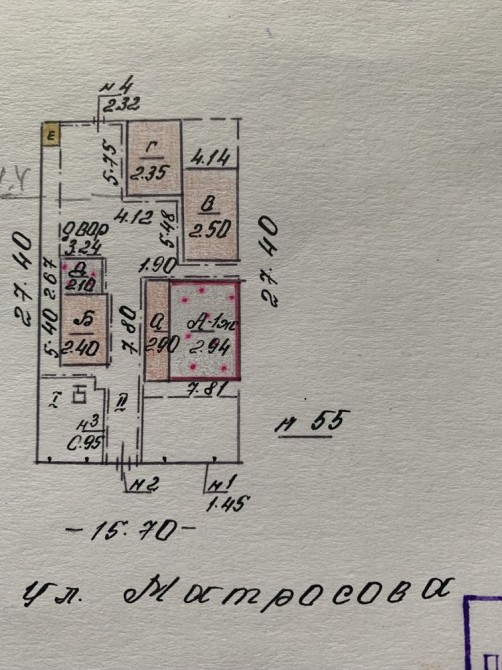 н 4
2.32
Е
Г
2.35
5.75
4.14
4.12
5.48
В
2.50
двор
3.24
27.40
27.40
Д
2.10
2.67
1.90
Б
2.40
5.40
7.80
а
2.90
А-1ж
2.94
7.81
I
II
н3
С.95
н 55
н2
н1
1.45
-15.70-
ул. Матросова